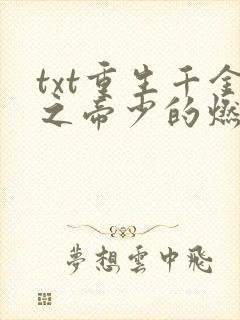 txt重生千金
之帝少的燃
夢想雲中飛